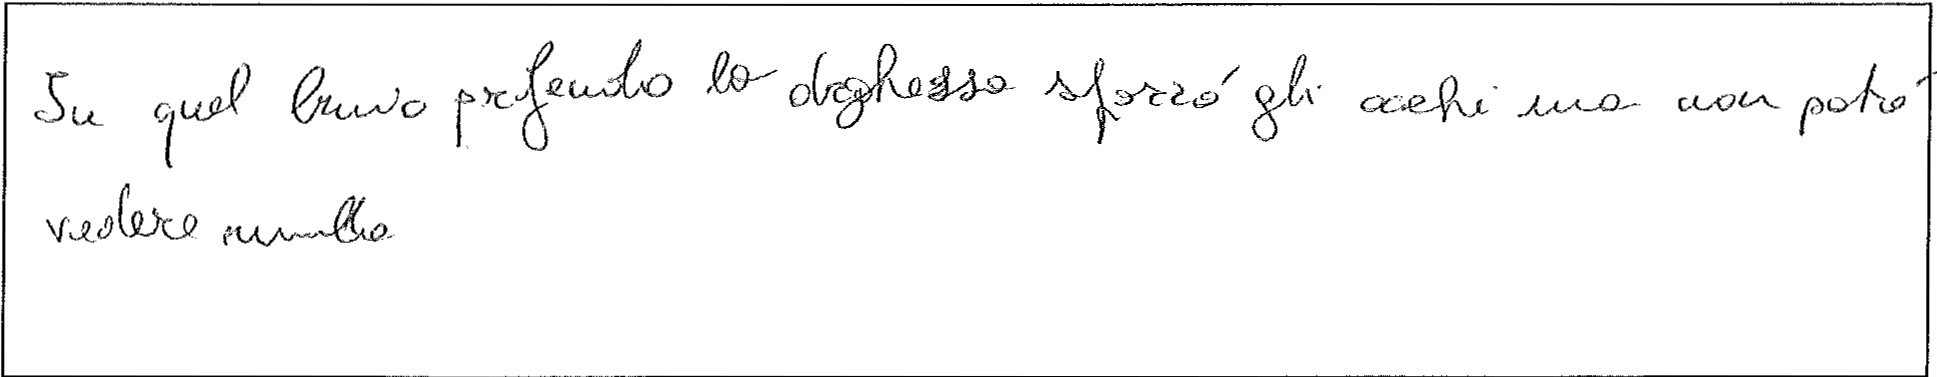 In quel bruno profondo la dogaressa sforzò gli occhi ma non poté
vedere nulla